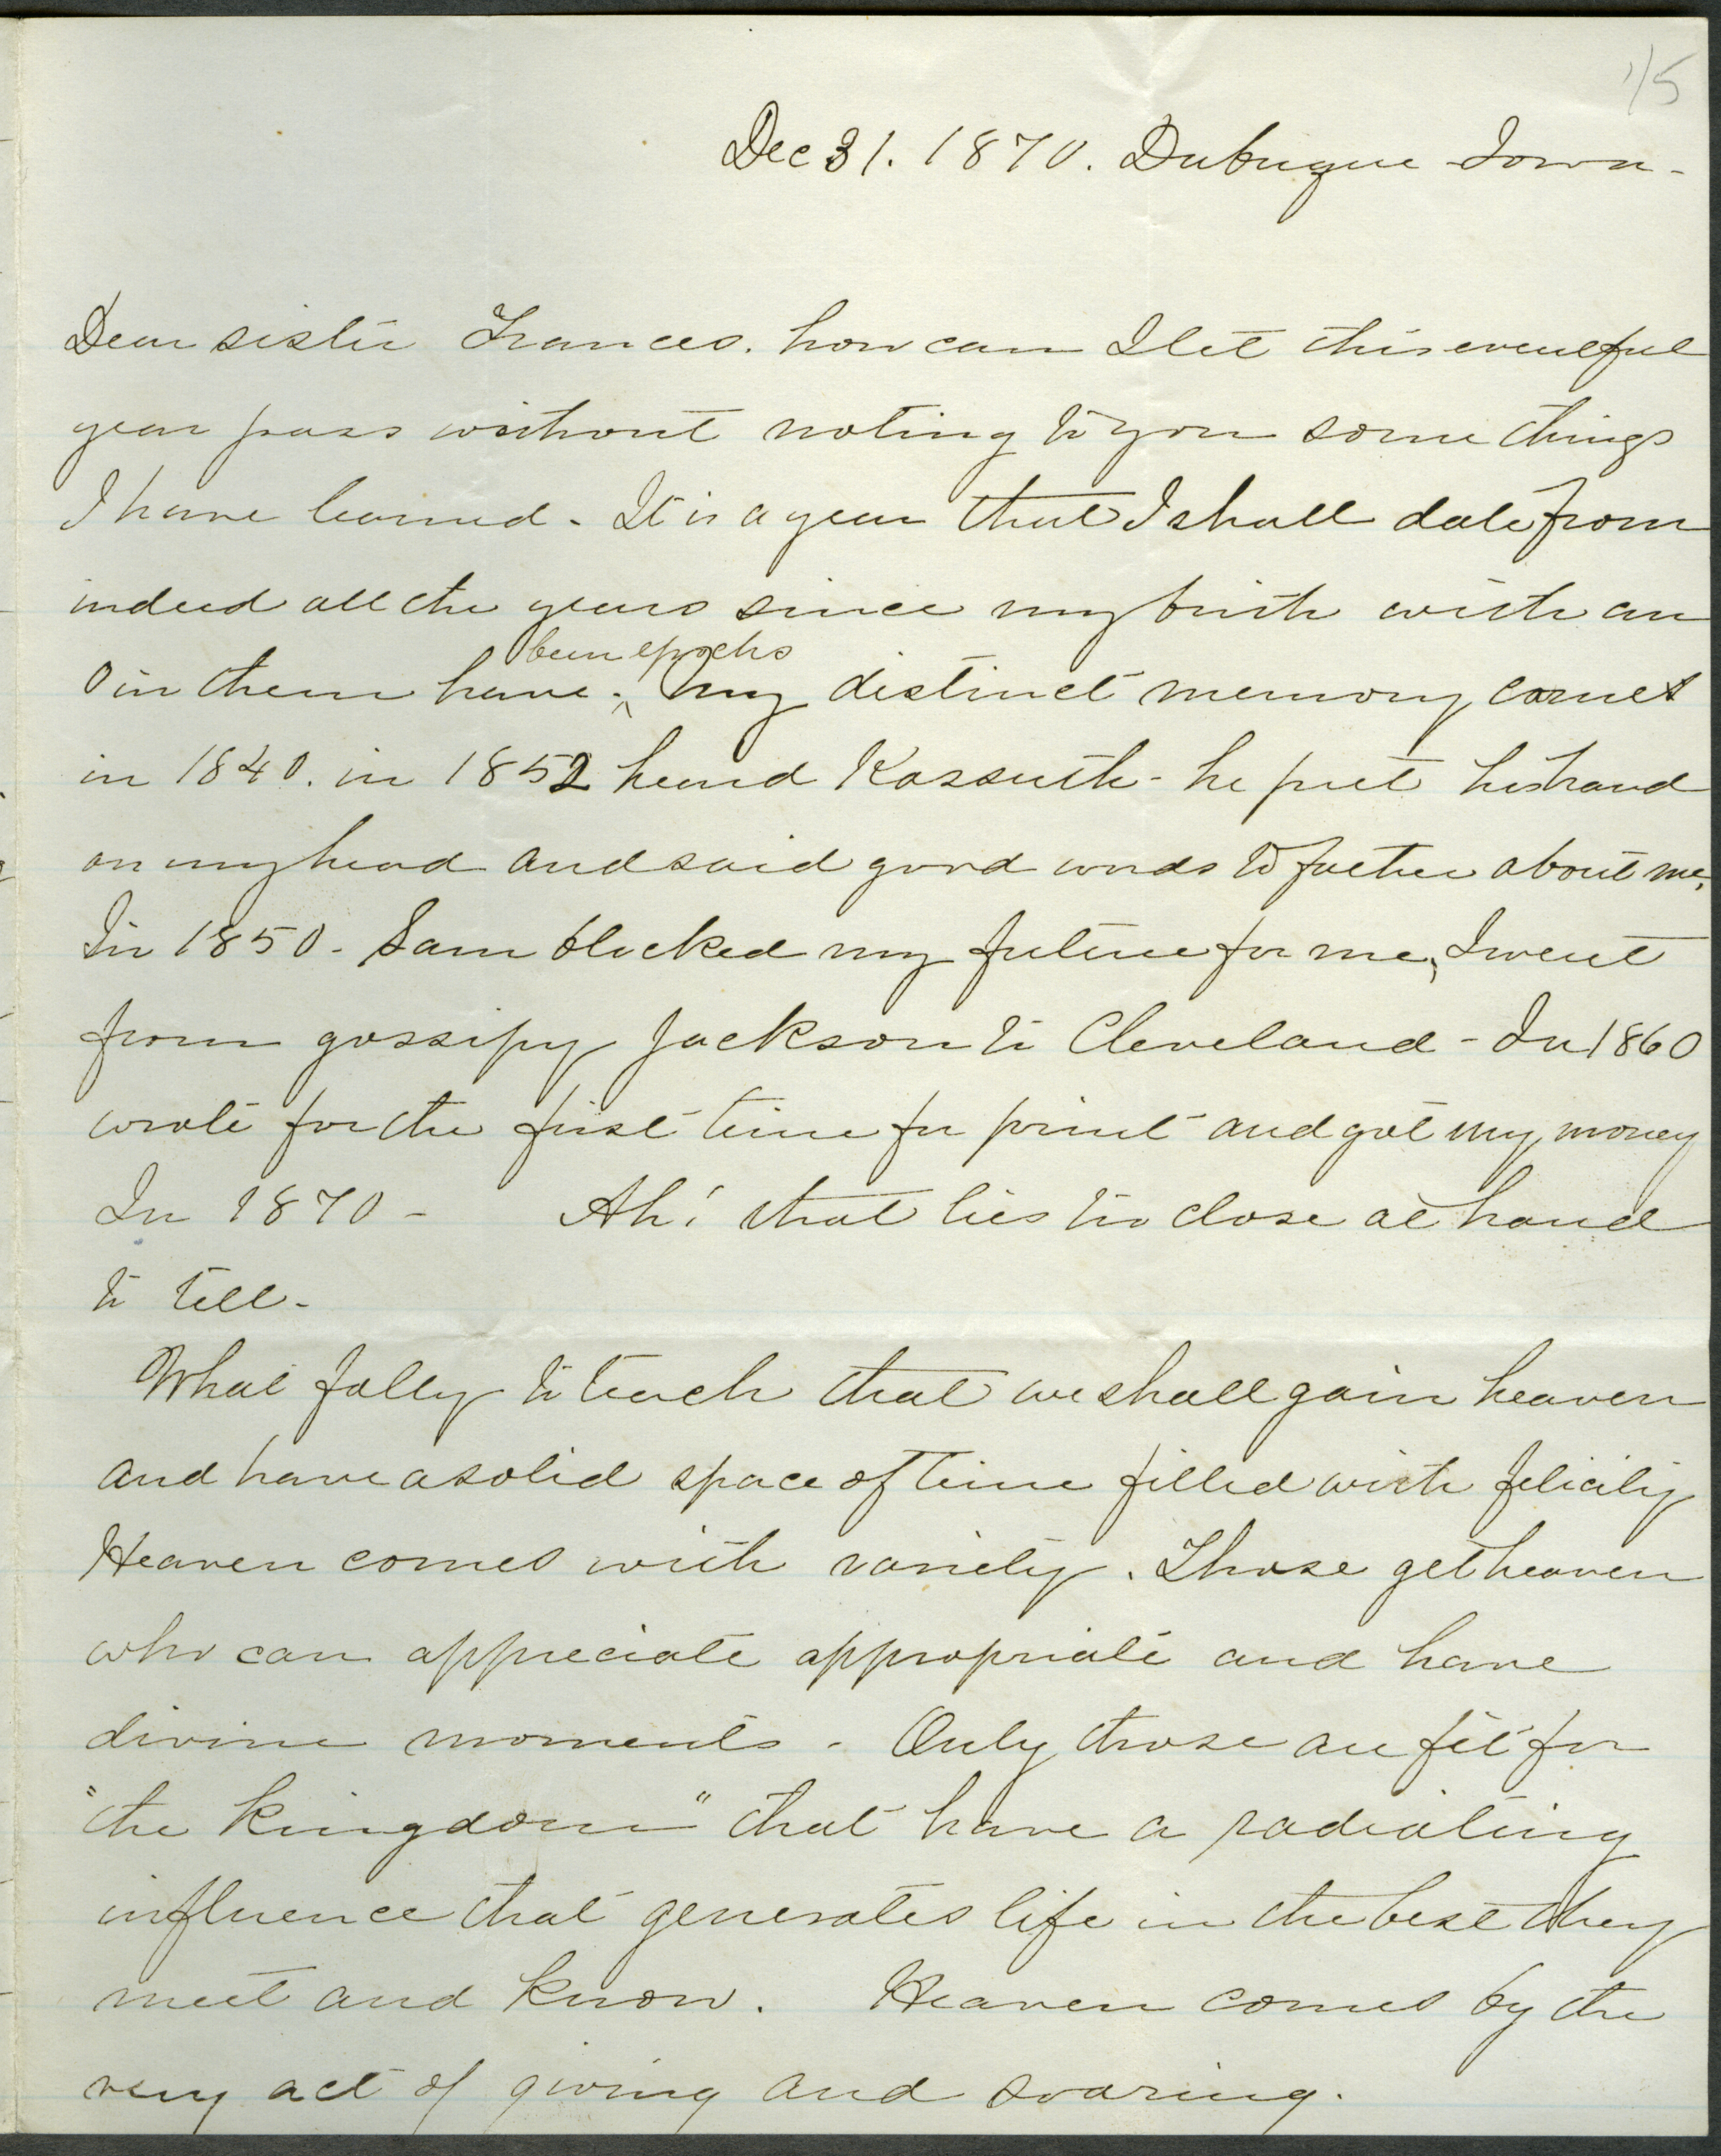 1/5
Dec 31. 1870. Dubuque Iowa-
Dear sister Frances. how can I let this eventful
year pass without noting to you some things
I have learned. It is a year that I shall date from
indeed all the years since my birth with an
been epochs
0 in them have. ^ My distinct memory comes
in 1840. in 1852 heard Kossuth - he put his hand
on my head and said good words to father about me.
In 1850 - Sam blocked my future for me, I went
from gossipy Jackson to Cleveland - In 1860
wrote for the first time for print and got my money
In 1870 - Ah! that lies too close at hand
to tell-
What folly to teach that we shall gain heaven
and have a solid space of time filled with felicity
Heaven comes with variety. Those get heaven
who can appreciate appropriate and have
divine moments - Only those are fit for
"the kingdom" that have a radiating
influence that generates life in the best they
meet and know. Heaven comes by the
very act of giving and soaring.